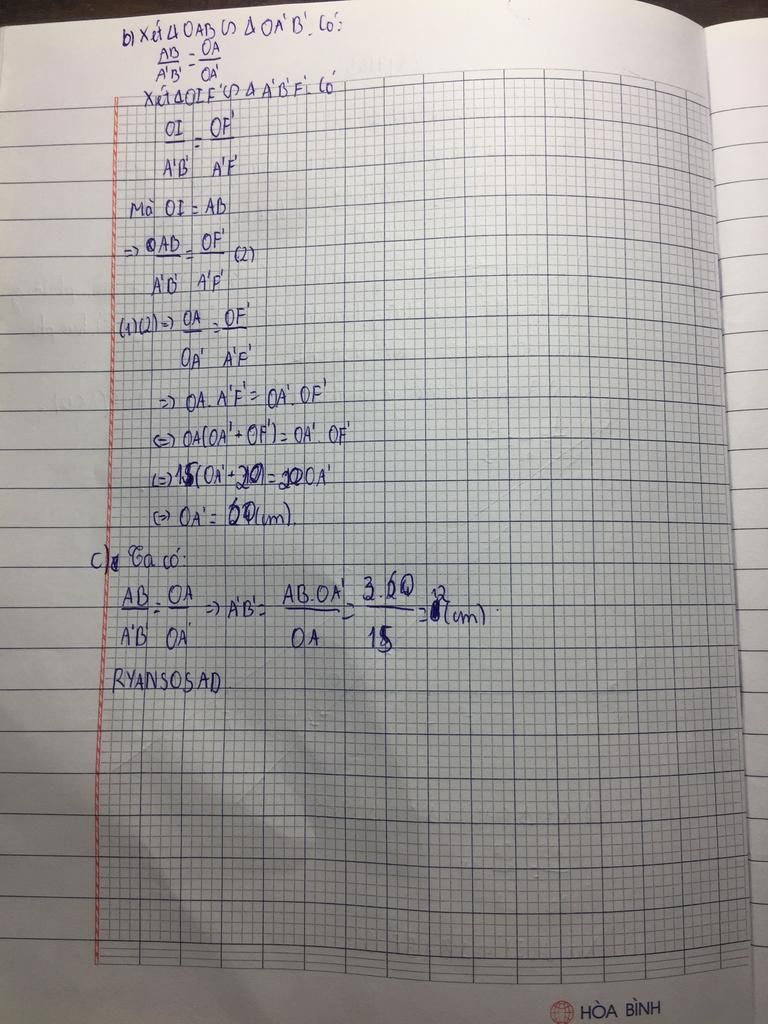 b) Xét Δ OAB ∽ Δ OA'B'. Có:
AB/A'B' = OA/OA'
Xét ΔOIF' ∽ Δ A'B'F'. Có
OI/A'B' = OF'/A'F'
Mà OI = AB
=> AB/A'B' = OF'/A'F' (2)
(1)(2) => OA/OA' = OF'/A'F'
=> OA. A'F' = OA'. OF'
<=> OA(OA' + OF') = OA'. OF'
<=> 15(OA' + 20) = 20OA'
<=> OA' = 60(cm).
c) Ta có:
AB/A'B' = OA/OA' => A'B' = AB.OA'/OA = 3.60/15 = 12(cm).
RYANSOSAD
HÒA BÌNH